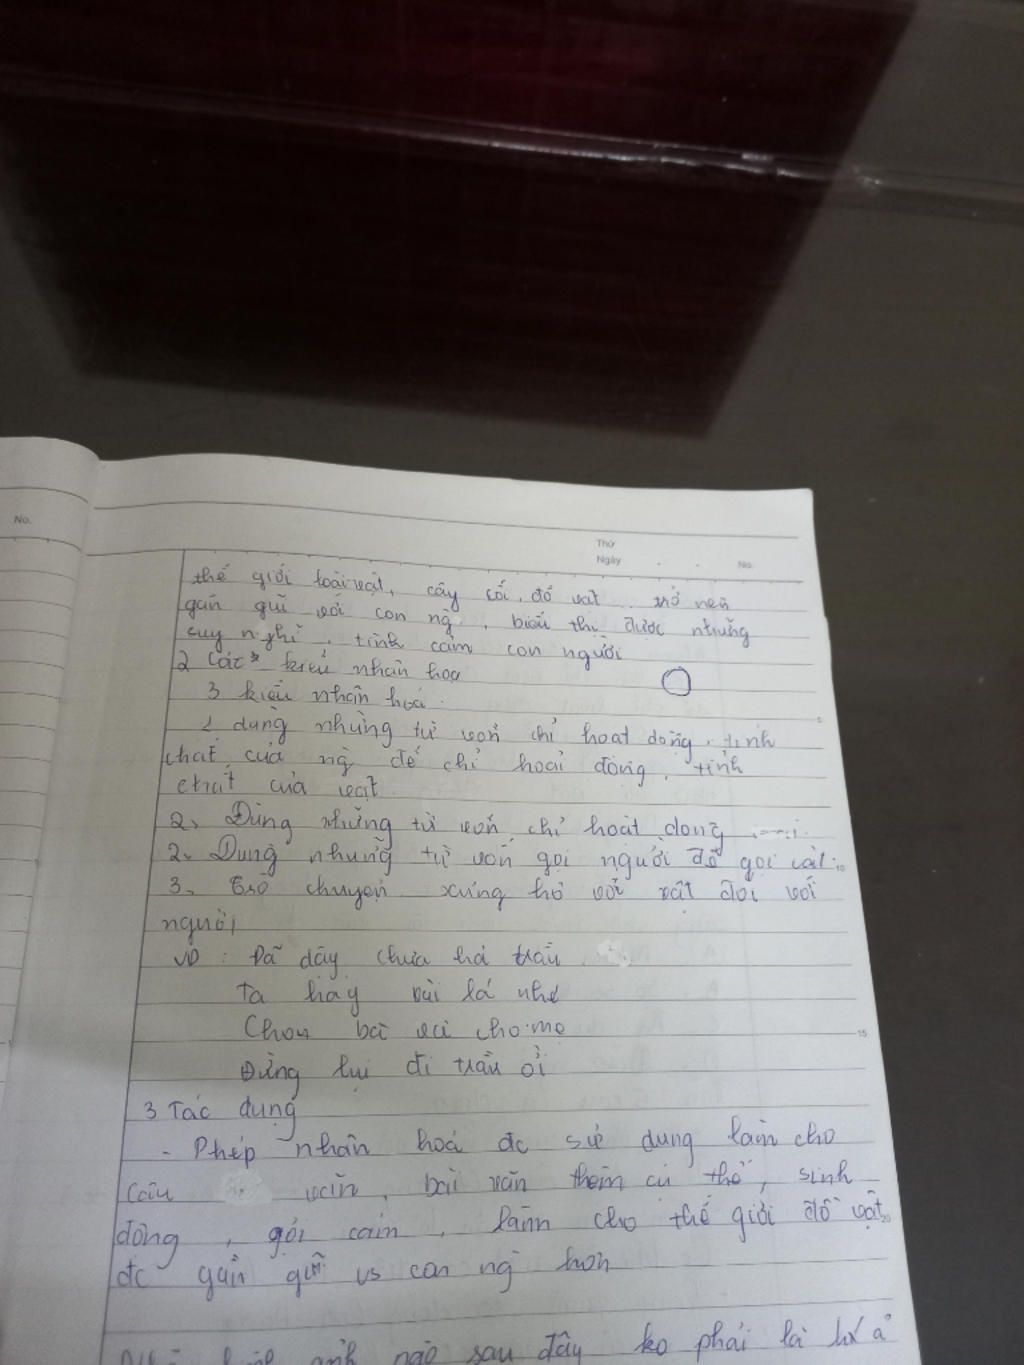 No.
Thứ
Ngày . . No.
thế giới loài vật, cây cối, đồ vật ... trở nên
gần gũi với con ng, biểu thị được những
suy nghĩ, tình cảm con người
2 Các kiểu nhân hoá
3 kiểu nhân hoá.
1 dùng những từ vốn chỉ hoạt động, tính
chất của ng để chỉ hoạt động, tính
chất của vật
2, Dùng những từ vốn chỉ hoạt dong
2. Dung những từ vốn gọi người để gọi vật.
10
3. Trò chuyện xưng hô với vật đối với
người
VD: Đã dậy chưa hả trầu
Ta hay vài lá nhé
Chou bà và cho mẹ
15
Đừng lụi đi trầu ơi
3 Tác dụng
- Phép nhân hoá đc sử dụng làm cho
câu văn, bài văn thêm cụ thể, sinh
động, gợi cảm, làm cho thế giới đồ vật
20
đc gần gũi vs con ng hơn
ảnh nào sau đây ko phải là